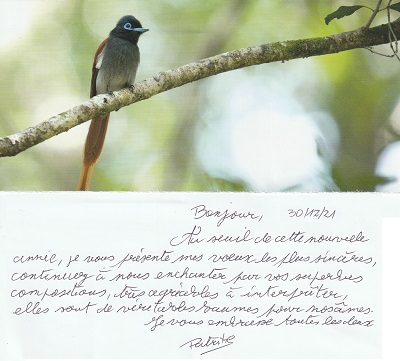 Bonjour, 30/12/21
Au seuil de cette nouvelle
année, je vous présente mes vœux les plus sincères,
continuez à nous enchanter par vos superbes
compositions, très agréables à interpréter,
elles sont de véritables baumes pour nos âmes.
Je vous embrasse toutes les deux